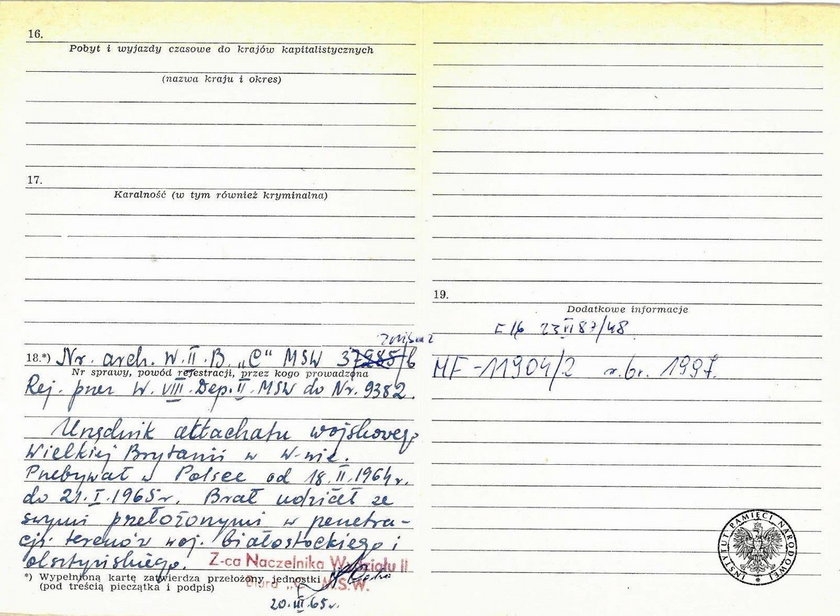 16.
Pobyt i wyjazdy czasowe do krajów kapitalistycznych
(nazwa kraju i okres)
17.
Karalność (w tym również kryminalna)
18.*) Nr. arch. W. II. B. „C" MSW 37985/6
Nr sprawy, powód rejestracji, przez kogo prowadzona
Rej. przez W. VIII. Dep. II. MSW do Nr. 9382.
Urzędnik attachatu wojskowego
Wielkiej Brytanii w W-wie.
Przebywał w Polsce od 18.II.1964r.
do 21.I.1965r. Brał udział ze
swymi przełożonymi w penetra-
cji terenów woj. białostockiego i
olsztyńskiego.
Z-ca Naczelnika Wydziału II
M.S.W.
*) Wypełnioną kartę zatwierdza przełożony jednostki
(pod treścią pieczątka i podpis)
20.III.65r.
19.
Dodatkowe informacje
MF-11904/2 1997.
INSTYTUT PAMIĘCI NARODOWEJ